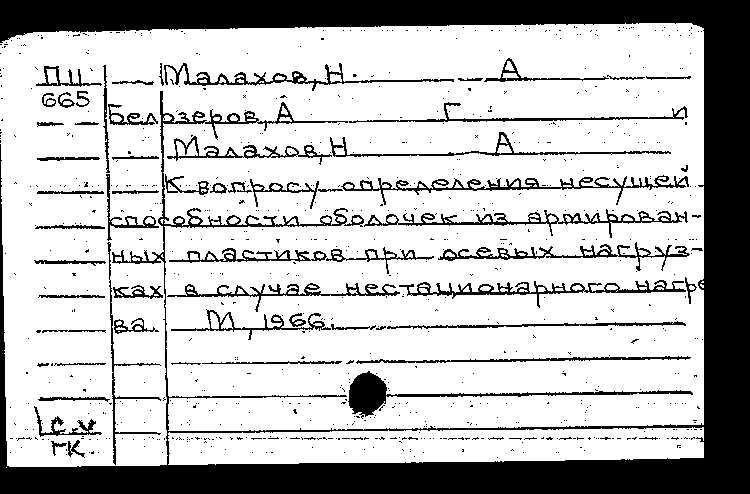 ПЦ Малахов, Н. А
665
Белозеров, А Г и
Малахов, Н А
К вопросу определения несущей
способности оболочек из армирован-
ных пластиков при осевых нагруз-
ках в случае нестационарного нагре
ва. М, 1966.
с.v
ГК.